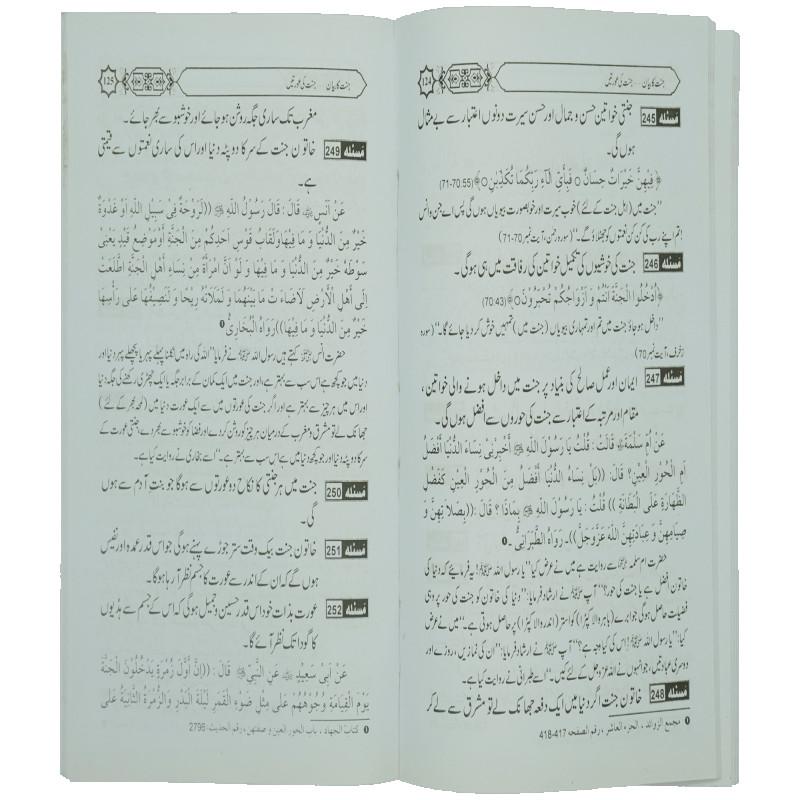 124
جنت کا بیان ... جنت کی عورتیں
مسئلہ 245 جنتی خواتین حسن و جمال اور حسن سیرت دونوں اعتبار سے بے مثال
ہوں گی۔
﴿فِیْهِنَّ خَیْرَاتٌ حِسَانٌ ○ فَبِأَیِّ آلَاءِ رَبِّكُمَا تُكَذِّبٰنِ ○﴾(55:70-71)
’’جنت میں (اہل جنت کے لئے) خوب سیرت اور خوبصورت بیویاں ہوں گی پس اے جن و انس
!تم اپنے رب کی کن کن نعمتوں کو جھٹلاؤ گے۔‘‘ (سورہ رحمن، آیت نمبر 70-71)
مسئلہ 246 جنت کی خوشیوں کی تکمیل خواتین کی رفاقت میں ہی ہو گی۔
﴿اُدْخُلُوا الْجَنَّةَ اَنْتُمْ وَ اَزْوَاجُكُمْ تُحْبَرُوْنَ ○﴾(43:70)
’’داخل ہو جاؤ جنت میں تم اور تمہاری بیویاں (جنت میں) تمہیں خوش کر دیا جائے گا۔‘‘ (سورہ
زخرف، آیت نمبر 70)
مسئلہ 247 ایمان اور عمل صالح کی بنیاد پر جنت میں داخل ہونے والی خواتین،
مقام اور مرتبہ کے اعتبار سے جنت کی حوروں سے افضل ہوں گی۔
عَنْ اُمِّ سَلَمَةَ قَالَتْ : قُلْتُ یَا رَسُوْلَ اللهِ ﷺ أَخْبِرْنِیْ نِسَاءُ الدُّنْیَا أَفْضَلُ
اَمِ الْحُوْرِ الْعِیْنِ؟ قَالَ: ((بَلْ نِسَاءُ الدُّنْیَا أَفْضَلُ مِنَ الْحُوْرِ الْعِیْنِ كَفَضْلِ
الظِّهَارَةِ عَلَی الْبَطَانَةِ )) قُلْتُ : یَا رَسُوْلَ اللهِ ﷺ بِمَاذَا ؟ قَالَ :((بِصَلَاتِهِنَّ وَ
صِیَامِهِنَّ وَ عِبَادَتِهِنَّ اللهَ عَزَّوَجَلَّ))۔ رَوَاهُ الطَّبْرَانِیُّ ❶
حضرت ام سلمہ سے روایت ہے میں نے عرض کیا’’یا رسول اللہ ﷺ! یہ فرمائیے کہ دنیا کی
خاتون افضل ہے یا جنت کی حور؟‘‘ آپ ﷺ نے ارشاد فرمایا: ’’دنیا کی خاتون کو جنت کی حور پر وہی
فضیلت حاصل ہو گی جو ابرے (باہر والا کپڑا) کو استر (اندر والا کپڑا) پر حاصل ہوتی ہے۔‘‘ میں نے عرض
کیا: ’’یا رسول اللہ ﷺ! اس کی کیا وجہ ہے؟‘‘ آپ ﷺ نے ارشاد فرمایا: ’’ان کی نمازیں، روزے اور
دوسری عبادتیں، جو انہوں نے اللہ عز وجل کے لئے کیں۔‘‘ اسے طبرانی نے روایت کیا ہے۔
مسئلہ 248 خاتون جنت اگر دنیا میں ایک دفعہ جھانک لے تو مشرق سے لے کر
❶ مجمع الزوائد ، الجزء العاشر ، رقم الصفحه 417-418
125
جنت کا بیان ... جنت کی عورتیں
مغرب تک ساری جگہ روشن ہو جائے اور خوشبو سے بھر جائے۔
مسئلہ 249 خاتون جنت کے سر کا دوپٹہ دنیا اور اس کی ساری نعمتوں سے قیمتی
ہے۔
عَنْ اَنَسٍ قَالَ : قَالَ رَسُوْلُ اللهِ ﷺ ((لَرَوْحَةٌ فِیْ سَبِیْلِ اللهِ اَوْ غَدْوَةٌ
خَیْرٌ مِنَ الدُّنْیَا وَ مَا فِیْهَا وَلَقَابُ قَوْسِ اَحَدِكُمْ مِنَ الْجَنَّةِ أَوْ مَوْضِعُ قَیْدٍ یَعْنِیْ
سَوْطَهٗ خَیْرٌ مِنَ الدُّنْیَا وَ مَا فِیْهَا وَ لَوْ اَنَّ امْرَأَةً مِنْ نِسَاءِ أَهْلِ الْجَنَّةِ اطَّلَعَتْ
اِلٰی أَهْلِ الْأَرْضِ لَاَضَاءَ تْ مَا بَیْنَهُمَا وَ لَمَلَاَتْهُ رِیْحًا وَ لَنَصِیْفُهَا عَلٰی رَأْسِهَا
خَیْرٌ مِنَ الدُّنْیَا وَ مَا فِیْهَا))رَوَاهُ الْبُخَارِیُّ ❶
حضرت انس کہتے ہیں رسول اللہ ﷺ نے فرمایا ’’اللہ کی راہ میں نکلنا پہلے پہر یا پچھلے پہر دنیا اور
دنیا میں جو کچھ ہے اس سب سے بہتر ہے، اور جنت میں ایک کمان کے برابر جگہ یا ایک چھڑی رکھنے کی جگہ دنیا
اور اس میں ہر چیز سے بہتر ہے اور اگر جنت کی عورتوں میں سے ایک عورت دنیا میں (لمحہ بھر کے لئے)
جھانک لے تو مشرق و مغرب کے درمیان ہر چیز کو روشن کر دے اور فضا کو خوشبو سے بھر دے، جنتی عورت کے
سر کا دوپٹہ دنیا اور جو کچھ دنیا میں ہے اس سب سے بہتر ہے۔‘‘ اسے بخاری نے روایت کیا ہے۔
مسئلہ 250 جنت میں ہر جنتی کا نکاح دو عورتوں سے ہو گا جو بنت آدم سے ہوں
گی۔
مسئلہ 251 خاتون جنت بیک وقت ستر جوڑے پہنے ہو گی جو اس قدر عمدہ اور نفیس
ہوں گے کہ ان کے اندر سے عورت کا جسم نظر آ رہا ہو گا۔
مسئلہ 252 عورت بذات خود اس قدر حسین و جمیل ہو گی کہ اس کے جسم سے ہڈیوں
کا گودا تک نظر آئے گا۔
عَنْ اَبِیْ سَعِیْدٍ عَنِ النَّبِیِّ ﷺ قَالَ : ((اِنَّ أَوَّلَ زُمْرَةٍ یَدْخُلُوْنَ الْجَنَّةَ
یَوْمَ الْقِیَامَةِ وُجُوْهُهُمْ عَلٰی مِثْلِ ضَوْءِ الْقَمَرِ لَیْلَةَ الْبَدْرِ وَ الزُّمْرَةُ الثَّانِیَةُ عَلٰی
❶ كتاب الجهاد ، باب الحور العین و صفتهن ، رقم الحدیث: 2796